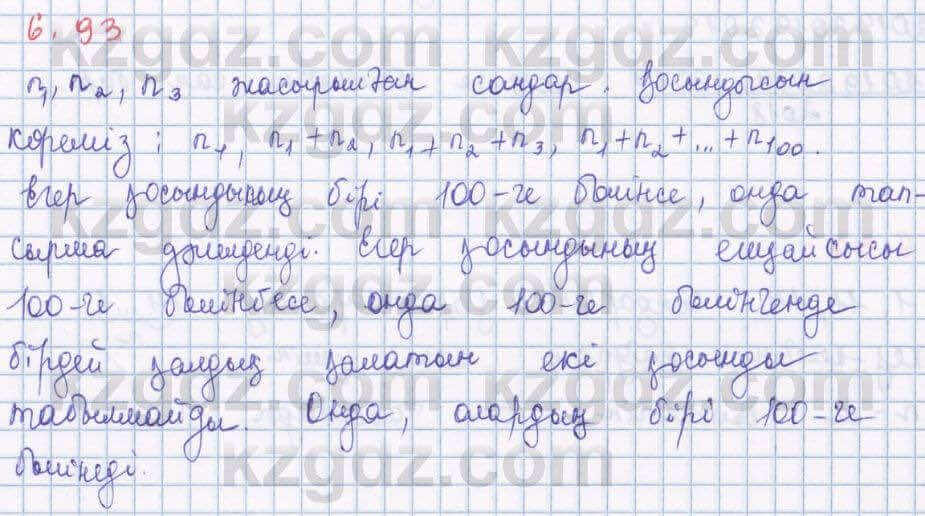 6.93
n₁, n₂, n₃ жасырылған сандар. Қосындысын
көреміз: n₁, n₁+n₂, n₁+n₂+n₃, n₁+n₂+...+n₁₀₀.
Егер қосындының бірі 100-ге бөлінсе, онда тап-
сырма дәлелденді. Егер қосындының ешқайсысы
100-ге бөлінбесе, онда 100-ге бөлінгенде
бірдей қалдық қалатын екі қосынды
табылмайды. Онда, олардың бірі 100-ге
бөлінеді.
kzgdz.com